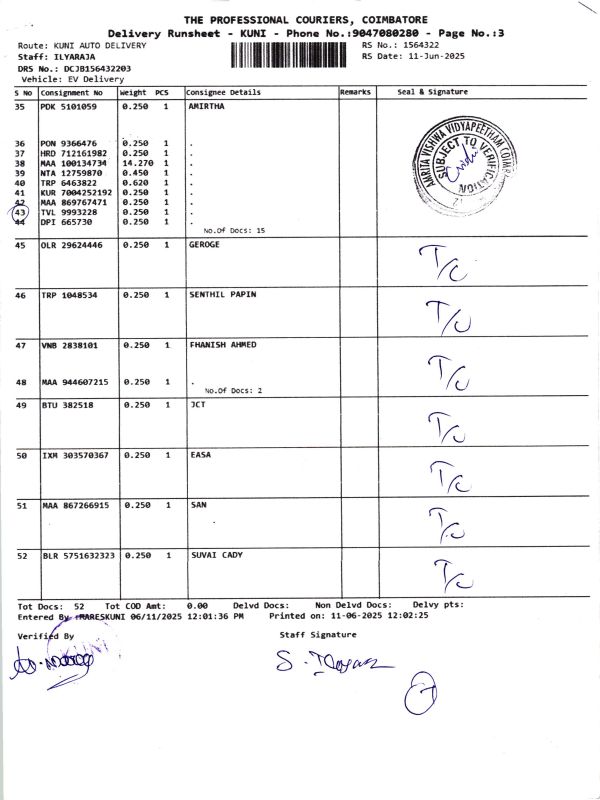 THE PROFESSIONAL COURIERS, COIMBATORE
Delivery Runsheet - KUNI - Phone No.:9047080280 - Page No.:3
Route: KUNI AUTO DELIVERY RS No.: 1564322
Staff: ILYARAJA RS Date: 11-Jun-2025
DRS No.: DCJB156432203
Vehicle: EV Delivery
S No Consignment No Weight PCS Consignee Details Remarks Seal & Signature
35 PDK 5101059 0.250 1 AMIRTHA
AMRITA VISHWA VIDYAPEETHAM COIMB
SUBJECT TO VERIFICATION
36 PON 9366476 0.250 1 .
37 HRD 712161982 0.250 1 .
38 MAA 100134734 14.270 1 .
39 NTA 12759870 0.450 1 .
40 TRP 6463822 0.620 1 .
41 KUR 7004252192 0.250 1 .
42 MAA 869767471 0.250 1 .
43 TVL 9993228 0.250 1 .
44 DPI 665730 0.250 1 .
No.Of Docs: 15
45 OLR 29624446 0.250 1 GEROGE T/C
46 TRP 1048534 0.250 1 SENTHIL PAPIN T/C
47 VNB 2838101 0.250 1 FHANISH AHMED T/C
48 MAA 944607215 0.250 1 .
No.Of Docs: 2
49 BTU 382518 0.250 1 JCT T/C
50 IXM 303570367 0.250 1 EASA T/C
51 MAA 867266915 0.250 1 SAN T/C
52 BLR 5751632323 0.250 1 SUVAI CADY T/C
Tot Docs: 52 Tot COD Amt: 0.00 Delvd Docs: Non Delvd Docs: Delvy pts:
Entered By :RARESKUNI 06/11/2025 12:01:36 PM Printed on: 11-06-2025 12:02:25
Verified By Staff Signature